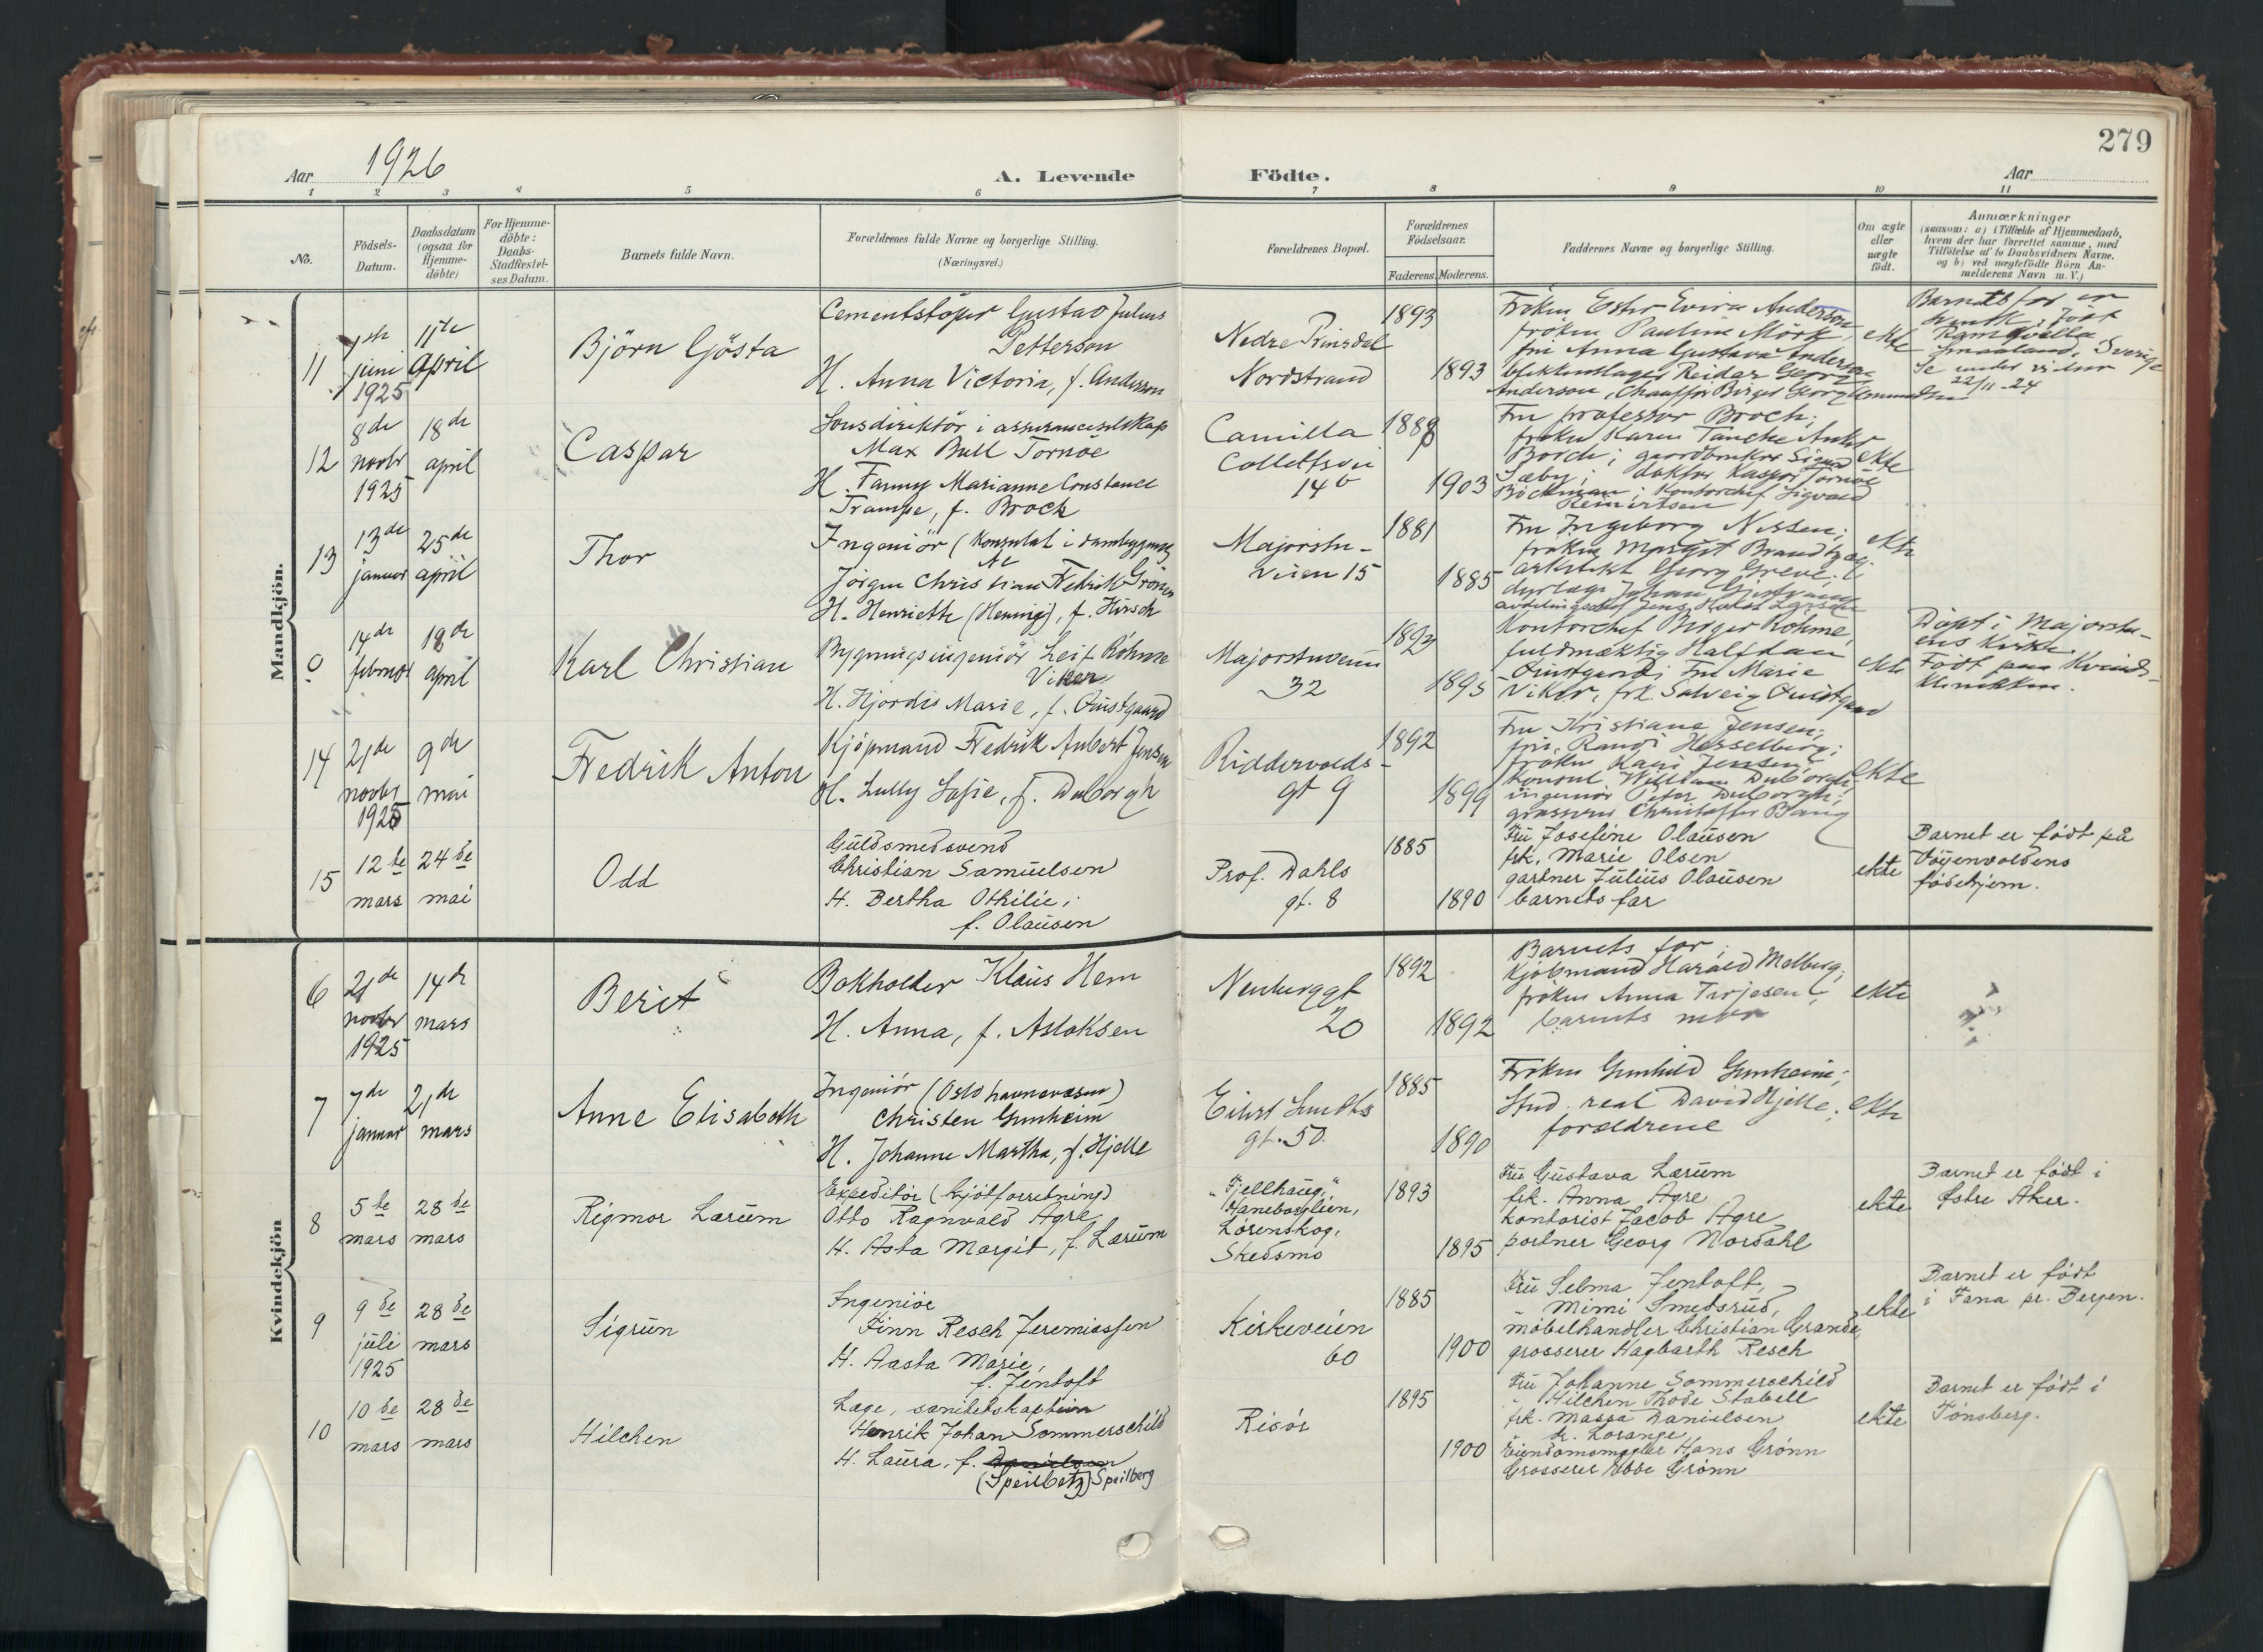 279
Aar 1926
A. Levende Födte.
Aar
1 2 3 4 5 6 7 8 9 10 11
No.
Födsels-Datum.
Daabsdatum (ogsaa for Hjemme-döbte)
For Hjemme-döbte: Daabs-Stadfæstel-ses Datum.
Barnets fulde Navn.
Forældrenes fulde Navne og borgerlige Stilling. (Næringsvei.)
Forældrenes Bopæl.
Forældrenes Födselsaar.
Faderens. Moderens.
Faddernes Navne og borgerlige Stilling.
Om ægte eller uægte födt.
Anmærkninger
(saasom: a) i Tilfælde af Hjemmedaab,
hvem der har forrettet samme, med
Tilföielse af to Daabsvidners Navne,
og b) ved uægtefödte Börn An-
melderens Navn m. V.)
Mandkjön.
11
juni
1925
april
Björn Gösta
Cementstöper Gustav Julius
Petterson
H. Anna Victoria, f. Anderson
Nedre Prinsdal
Nordstrand
1893
1893
Fröken Ester Anderson
fröken Pauline Mörk,
fru Anna Gustava Anderson
Anderson, Chaufför Birger Georg
ekte
Barnets far er
svensk, født
Sverige
22/11-24
12
8de
novbr
1925
18de
april
Caspar
i assuranceselskap
Max Bull Tornöe
H. Fanny Marianne Constance
Trampe, f. Broch
Camilla
Collettsvei
14b
1888
1903
Fru professor Broch;
fröken Karen Tanche Anker
Broch; gaardbruker Sigurd
Sæby; doktor Kaspar Tornöe
Böckman; Kontorchef Sigvald
ekte
13
13de
januar
25de
april
Thor
Ingeniör (Konsulat i dambygning
Jörgen Christian Fredrik Gröner
H. Henriette (Henning), f. Hirsch
Majorstu-
veien 15
1881
1885
Fru Ingeborg Nissen;
fröken Margit Brandtzæg;
arkitekt Georg Greve;
ekte
0
14de
februar
18de
april
Karl Christian
Bygningsingeniör Leif Röhme
Viker
H. Hjördis Marie, f. Quistgaard
Majorstuveien
32
1893
1895
Kontorchef Birger Röhme,
fuldmæktig Halfdan
Quistgaard; Fru Marie
Viker, frk. Solveig Quistgaard
ekte
Döpt i Majorstu-
ens Kirke.
Födt paa Kvinde-
klinikken.
14
21de
novbr
1925
9de
mai
Fredrik Anton
Kjöpmand Fredrik Anbert Jensen
H. Lully Sofie, f. Duborgh
Riddervolds-
gt 9
1892
1899
Fru Kristiane Jensen;
fru Randi Hesselberg;
fröken Jensen;
Konsul William Duborgh;
ingeniör Peter Duborgh;
grosserer Christoffer Bang
ekte
15
12te
mars
24de
mai
Odd
Guldsmedsvend
Christian Samuelsen
H. Bertha Othilie;
f. Olausen
Prof. Dahls
gt. 8
1885
1890
Fru Josefine Olausen
frk. Marie Olsen
gartner Julius Olausen
barnets far
ekte
Barnet er født på
Føyenvoldens
fødehjem.
Kvindekjön
6
21de
novbr
1925
14de
mars
Berit
Bokholder Klaus Hem
H. Anna, f. Aslaksen
Neuberggt
20
1892
1892
Barnets far;
kjöbmand Harald Melberg;
fröken Anna Tarjesen;
barnets mor
ekte
7
7de
januar
21de
mars
Anne Elisabeth
Ingeniör (Oslo havnevæsen)
Christen Gunheim
H. Johanne Martha, f. Hjelle
Eilert Sundts
gt. 50
1885
1890
Fröken Gunhild Gunheim;
Stud. real David Hjelle;
foreldrene
ekte
8
5te
mars
28de
mars
Rigmor Lærum
Expeditør (kjøtforretning)
Otto Ragnvald Agre
H. Asta Margit, f. Lærum
"Fjellhaug,"
Hanebor­glien,
Lørenskog,
Skedsmo
1893
1895
Fru Gustava Lærum
frk. Anna Agre
kontorist Jacob Agre
portner Georg Nordahl
ekte
Barnet er født i
Østre Aker.
9
9de
juli
1925
28de
mars
Sigrun
Ingeniør
Finn Resch Jeremiassen
H. Aasta Marie,
f. Jentoft
Kirkeveien
60
1885
1900
Fru Selma Jentoft,
" Mimi Smedsrud,
møbelhandler Christian Grande,
grosserer Hagbarth Resch
ekte
Barnet er født
i Fana pr. Bergen.
10
10de
mars
28de
mars
Hilchen
Læge, sanitetskaptein
Henrik Johan Sommerschild
H. Laura, f. Danielsen
(Speilbetz) Speilberg
Risør
1895
1900
Fru Johanne Sommerschild
" Hilchen Thode Stabell
frk. Massa Danielsen
dr. Lorange
Eiendomsmægler Hans Grønn
Grosserer Ebbe Grønn
ekte
Barnet er født i
Tønsberg.